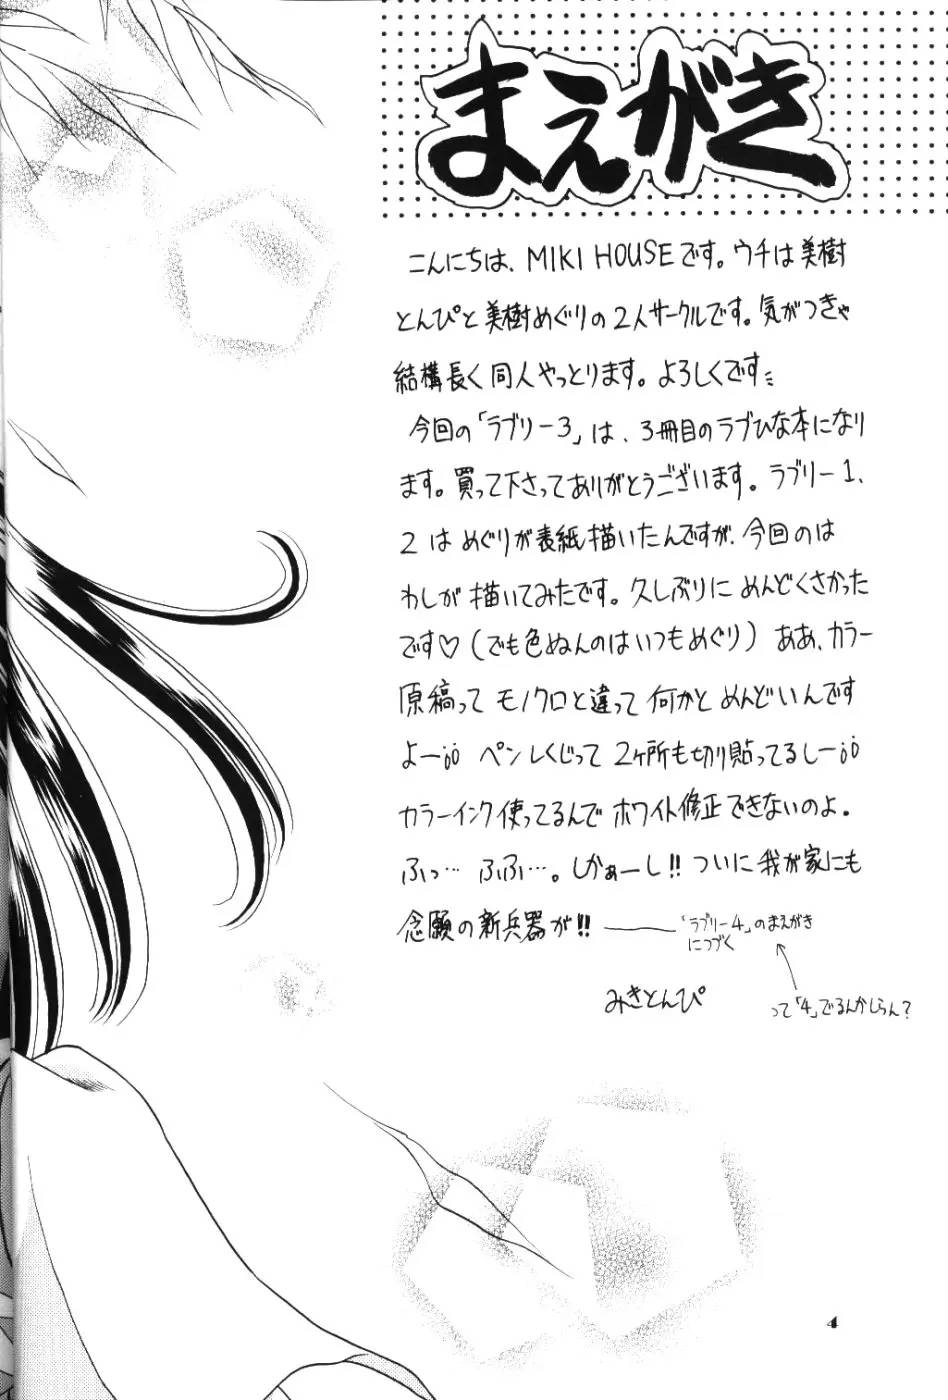 まえがき
こんにちは、MIKI HOUSEです。ウチは美樹
とんぴと美樹めぐりの2人サークルです。気がつきゃ
結構長く同人やっとります。よろしくです
今回の「ラブリー3」は、3冊目のラブひな本になり
ます。買って下さってありがとうございます。ラブリー1、
2はめぐりが表紙描いたんですが、今回のは
わしが描いてみたです。久しぶりにめんどくさかった
です♡(でも色ぬんのはいつもめぐり)ああ、カラー
原稿ってモノクロと違って何かとめんどいんです
よー ペンしくじって2ヶ所も切り貼ってるしー
カラーインク使ってるんでホワイト修正できないのよ。
ふっ…ふふ…。しかぁーし!!ついに我が家にも
念願の新兵器が!!
「ラブリー4」のまえがき
につづく
って「4」でるんかしらん?
みきとんぴ
4